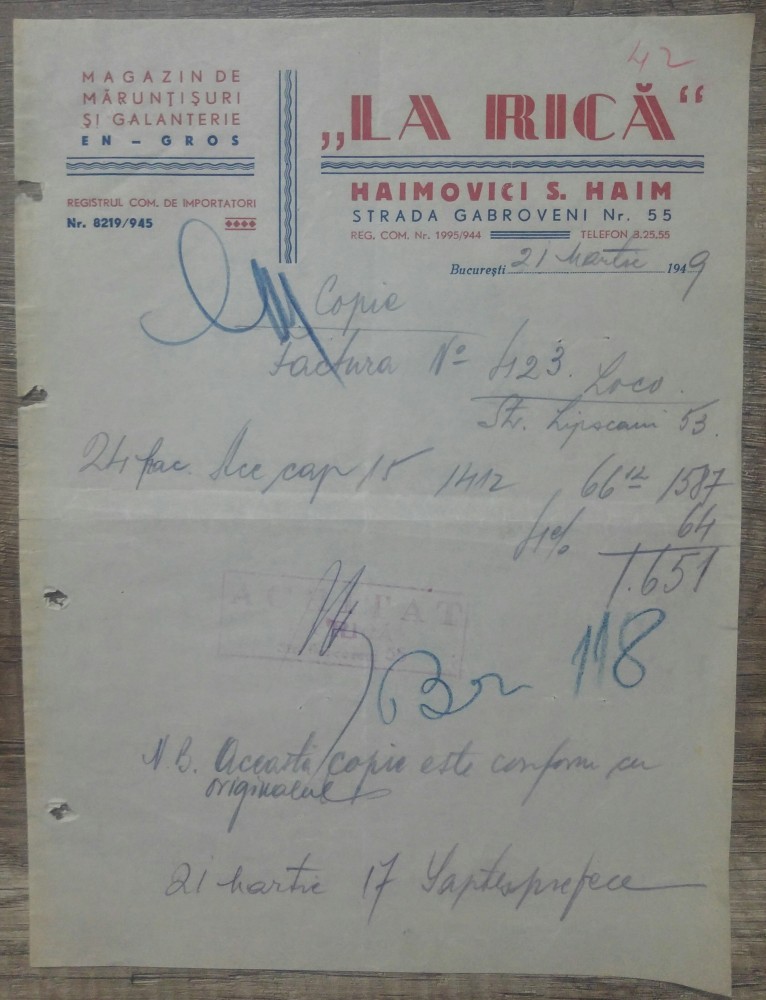 42
MAGAZIN DE
MĂRUNȚIȘURI
ȘI GALANTERIE
EN – GROS
REGISTRUL COM. DE IMPORTATORI
Nr. 8219/945
„LA RICĂ“
HAIMOVICI S. HAIM
STRADA GABROVENI Nr. 55
REG. COM. Nr. 1995/944 TELEFON 3.25.55
București 21 Martie 1949
Copie
Factura No 423. Loco.
Str. Lipscani 53.
24 pac. Ace cap 15 1412 66 12 1587
4% 64
1.651
ACHITAT
Bon 118
N.B. Această copie este conform cu
originalul
21 Martie 17 Saptesprefece